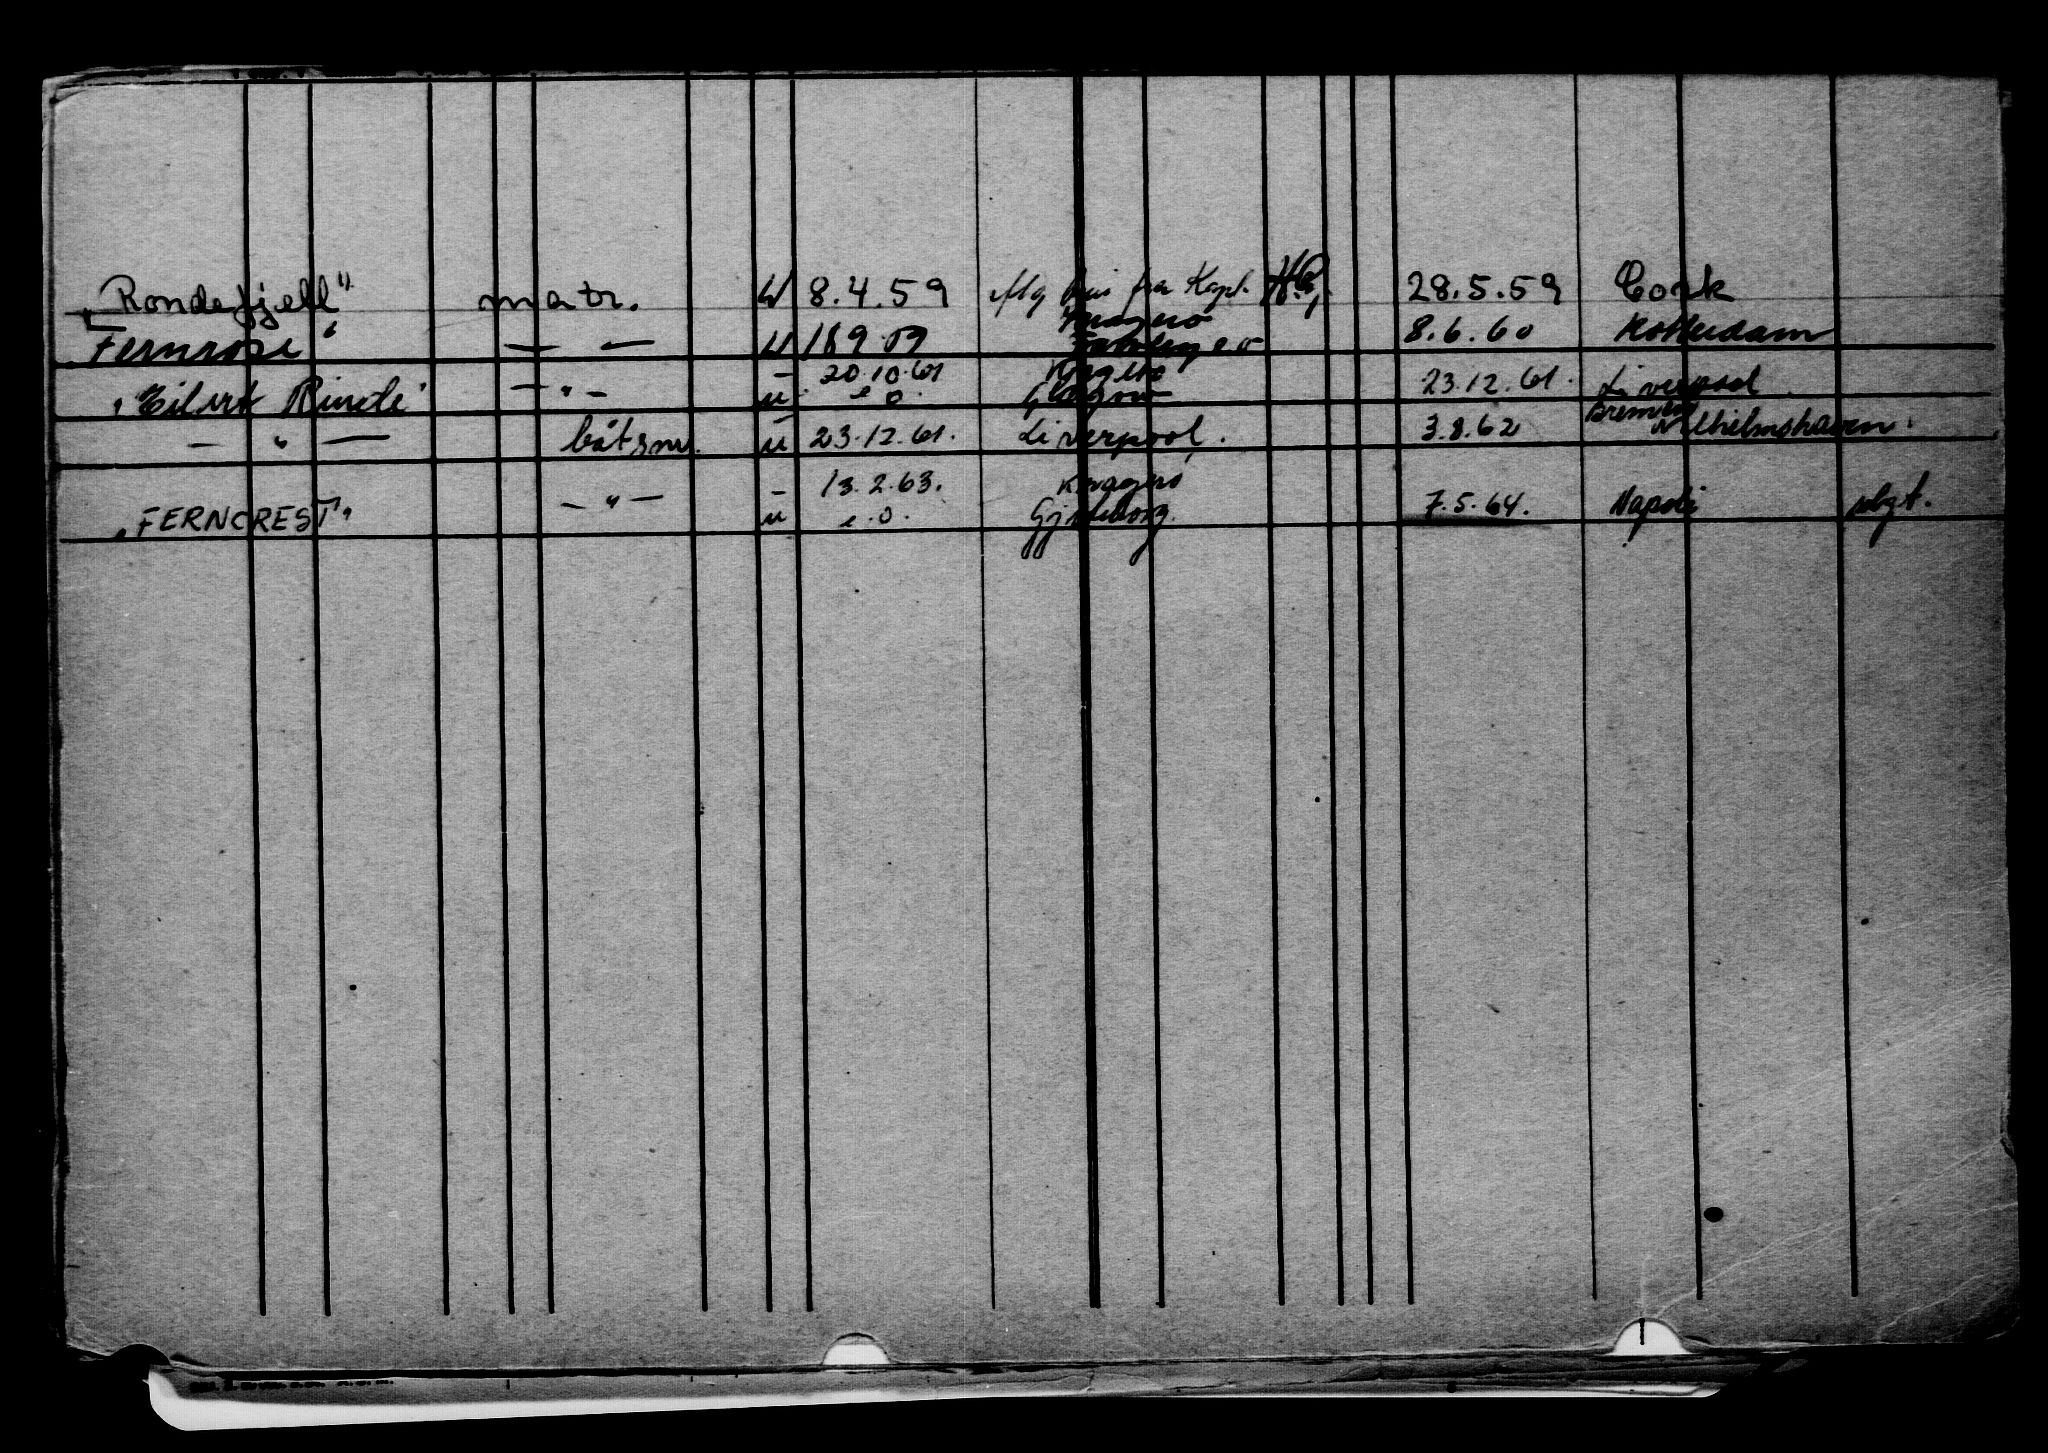 „Rondefjell" matr. u 8.4.59 fra Kapt. 28.5.59 Cork
Kragerø
Fernrose" — — u 18 9 59 8.6.60 Rotterdam
- 20.10.61 Kragerø
„Eilert Rinde" — " — u. e o. Glasgow 23.12.61. Liverpool
Bremen
— " — båtsm. u 23.12.61. Liverpool. 3.8.62 Wilhelmshaven.
- 13.2.63. Kragerø
„FERNCREST" — " — u e.o. Gøteborg. 7.5.64. Napoli